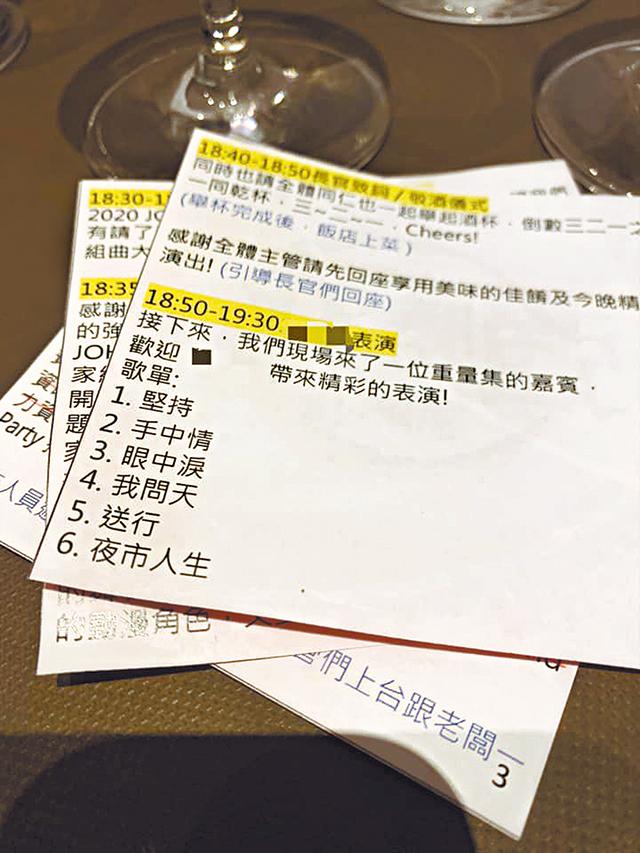 18:40-18:50長官致詞/敬酒儀式
同時也請全體同仁也一起舉起酒杯,倒數三二一之
一同乾杯,三~二~一,Cheers!
(舉杯完成後,飯店上菜)
感謝全體主管請先回座享用美味的佳餚及今晚精
演出!(引導長官們回座)
18:50-19:30 表演
接下來,我們現場來了一位重量集的嘉賓,
歡迎 帶來精彩的表演!
歌單:
1. 堅持
2. 手中情
3. 眼中淚
4. 我問天
5. 送行
6. 夜市人生
18:30-1
2020 JO
有請了
組曲大
18:35
感謝
的強
JOH
家
開
題
家
資
力資
Party
人員
角色,
們上台跟老闆一
3